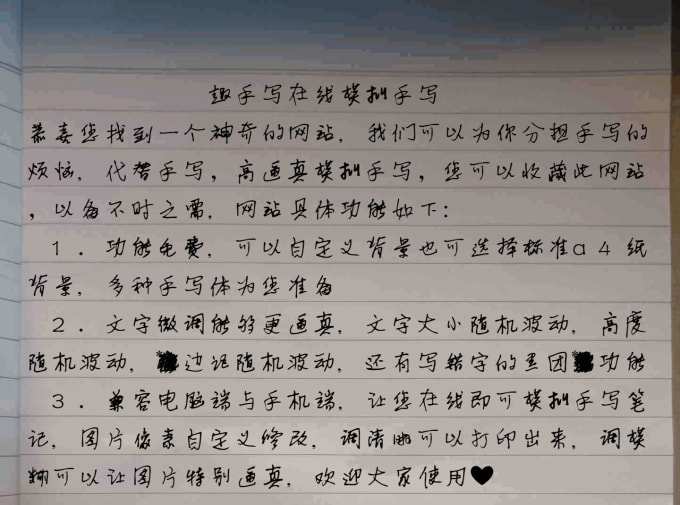 趣手写在线模拟手写
恭喜您找到一个神奇的网站，我们可以为你分担手写的
烦恼，代替手写，高逼真模拟手写，您可以收藏此网站
，以备不时之需，网站具体功能如下：
1．功能免费，可以自定义背景也可选择标准a4纸
背景，多种手写体为您准备
2．文字微调能够更逼真，文字大小随机波动，高度
随机波动，边距随机波动，还有写错字的黑团功能
3．兼容电脑端与手机端，让您在线即可模拟手写笔
记，图片像素自定义修改，调清晰可以打印出来，调模
糊可以让图片特别逼真，欢迎大家使用♥